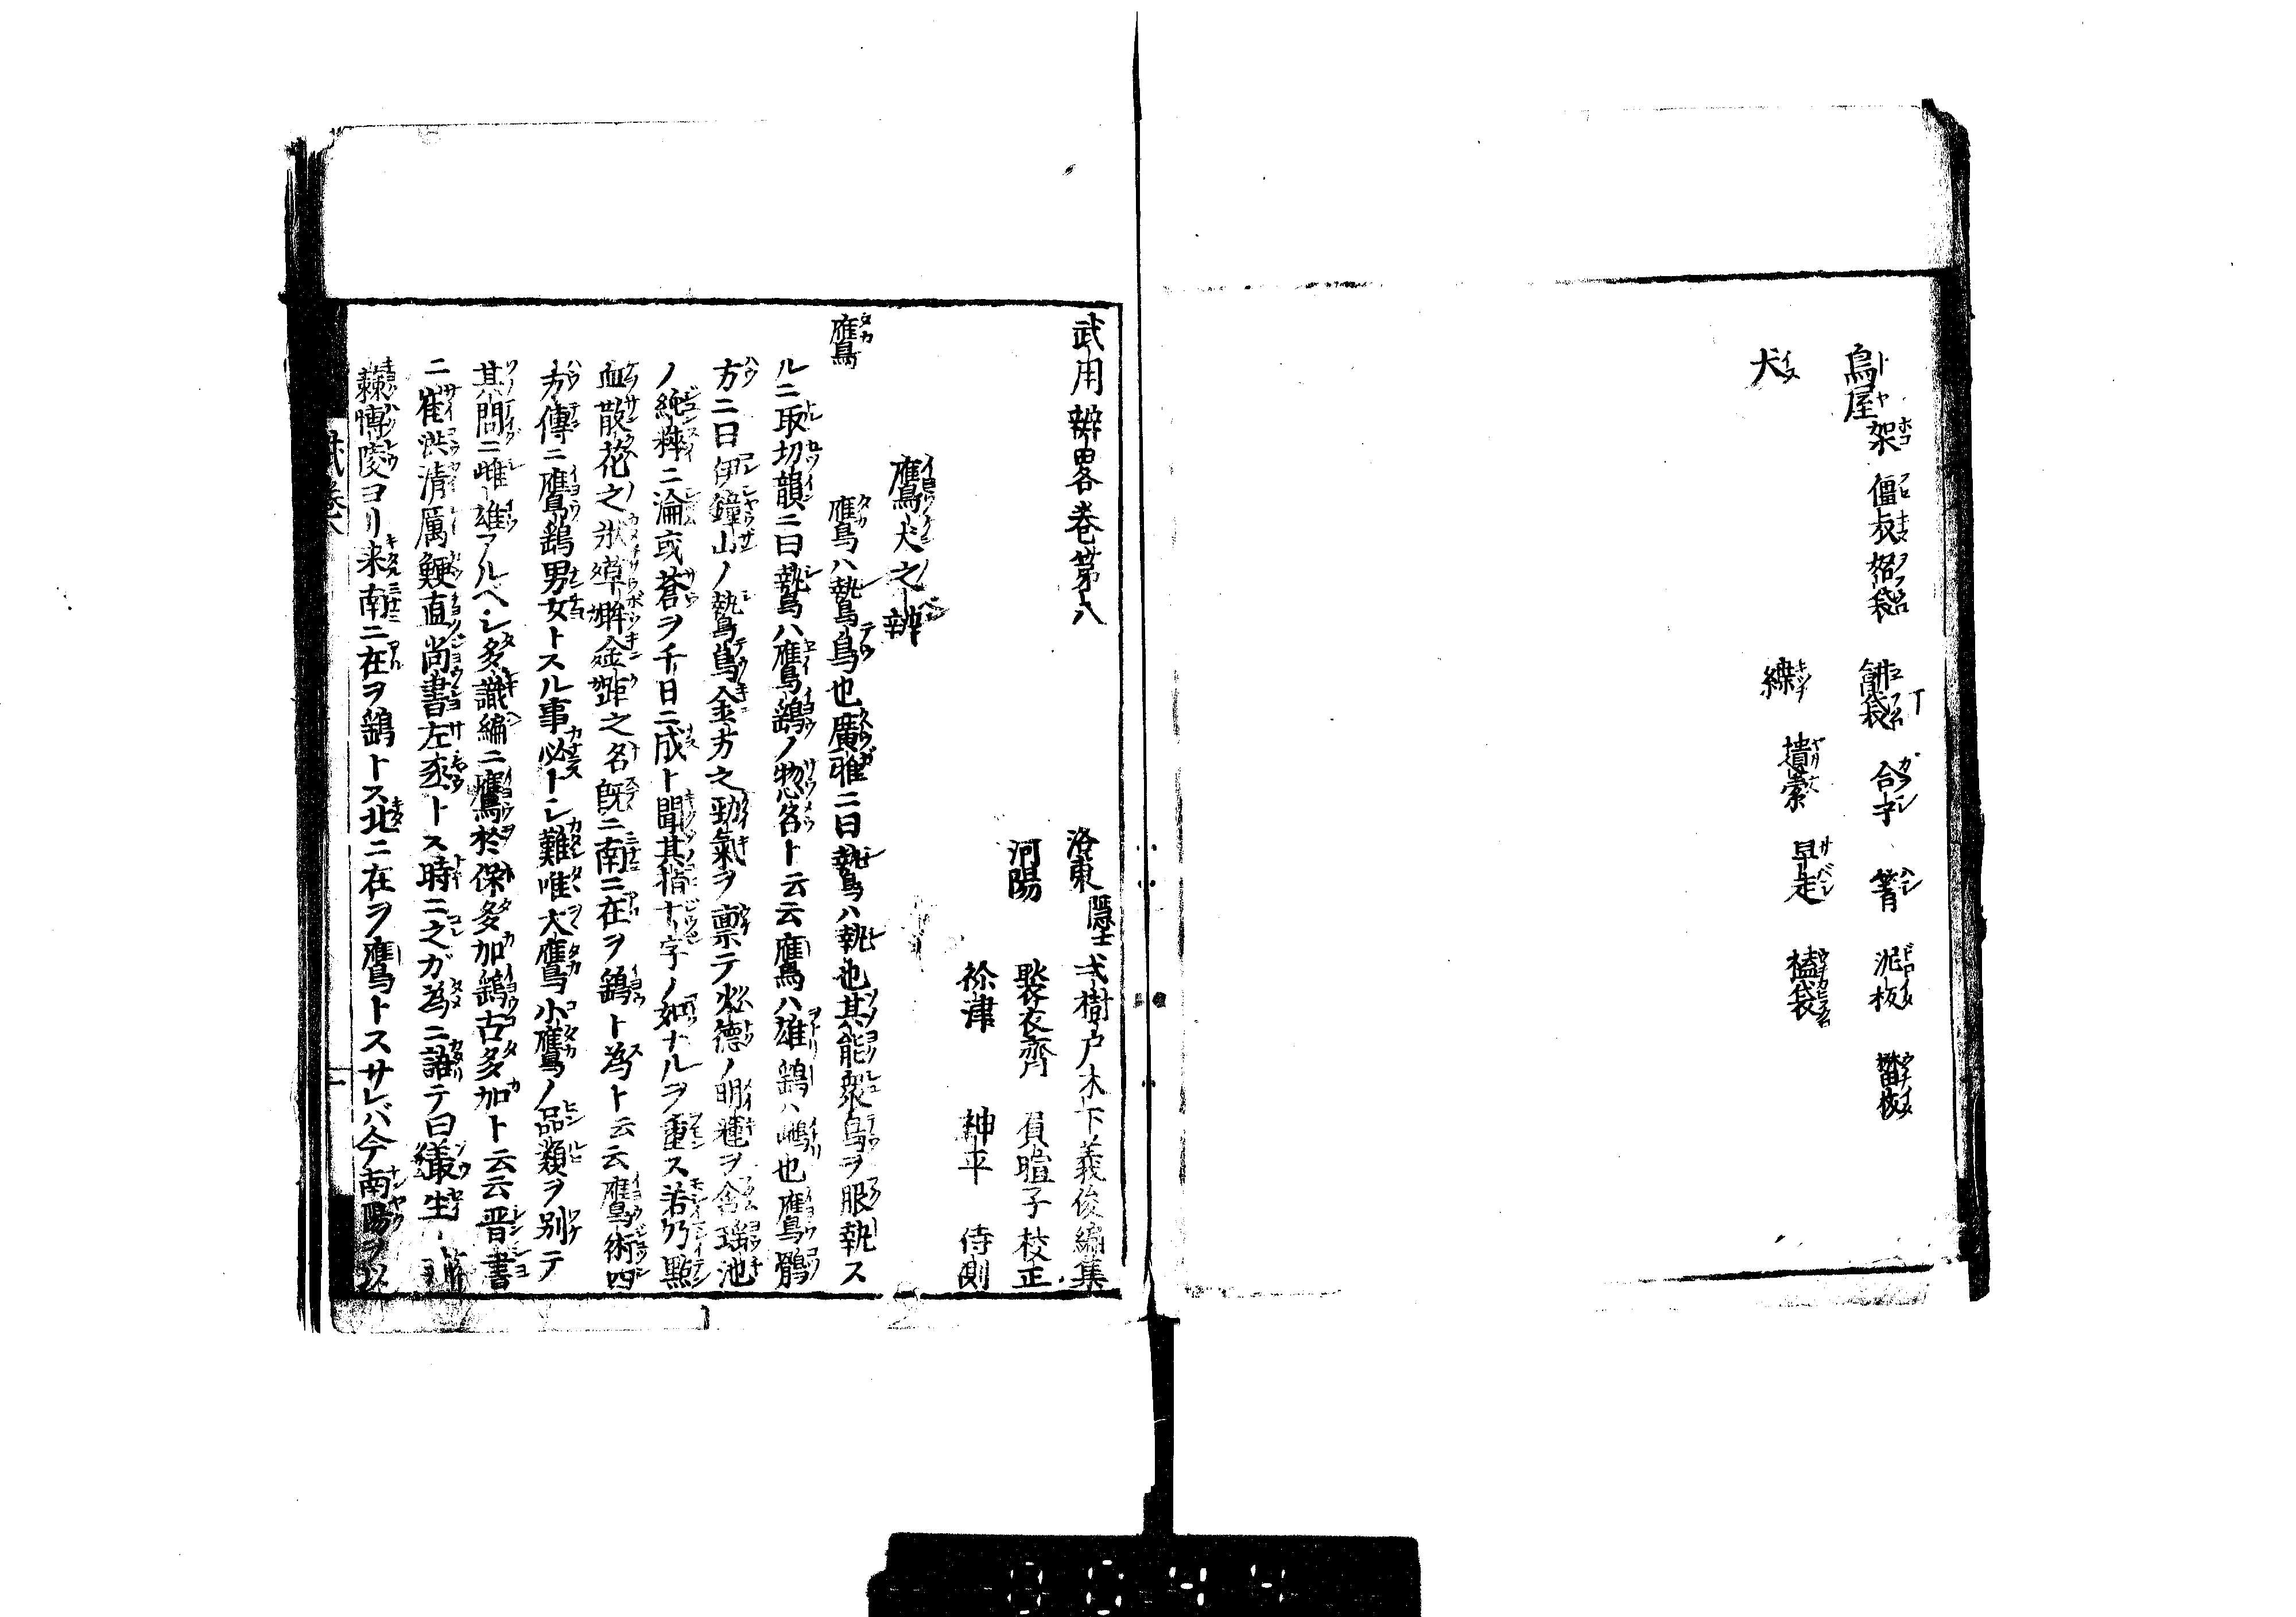 鳥屋 架 餌袋 合子 箸 泥板
犬 緤 早走 𣠽袋
武用辨畧巻第八
洛東隱士 弌樹戸木下義俊編集
河陽 裂衣齊 負暄子校正
徐津 神平 侍則
鷹犬之辨
鷹 鷹ハ鷙鳥也廣雅ニ曰鷙ハ執也其能衆鳥ヲ服執ス
ルニ取切韻ニ曰鷙鳥ハ鷹鷂ノ惣名ト云云鷹ハ雄鷂ハ雌也鷹鶻
方ニ曰伊鐘山ノ鷙鳥金方之勁氣ヲ禀テ炎德ノ明輝ヲ含瑶池
ノ純粹ニ淪或蒼ヲ千日ニ成ト聞其指十字ノ如ナルヲ重ス若乃點
血散花之状卓眸金距之名既ニ南ニ在ヲ鷂ト為ト云云鷹術四
方傳ニ鷹鷂男女トスル事必トシ難唯大鷹小鷹ノ品類ヲ別テ
其間ニ雌雄アルヘシ多識編ニ鷹於保多加鷂古多加ト云云晋書
ニ崔洪清厲鯁直尚書左丞トス時ニ之ガ為ニ語テ曰叢生
棘博陵ヨリ来南ニ在ヲ鷂トス北ニ在ヲ鷹トスサレバ今南陽ヲ以